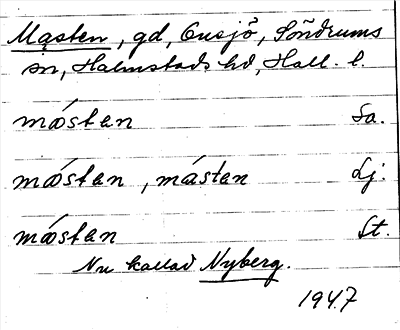 Masten, gd, Onsjö, Söndrums
sn, Halmstads hd, Hall. l.
mǻstan Sa.
mǻstan, mástan Lj.
mǻstan St.
Nu kallad Nyberg.
1947